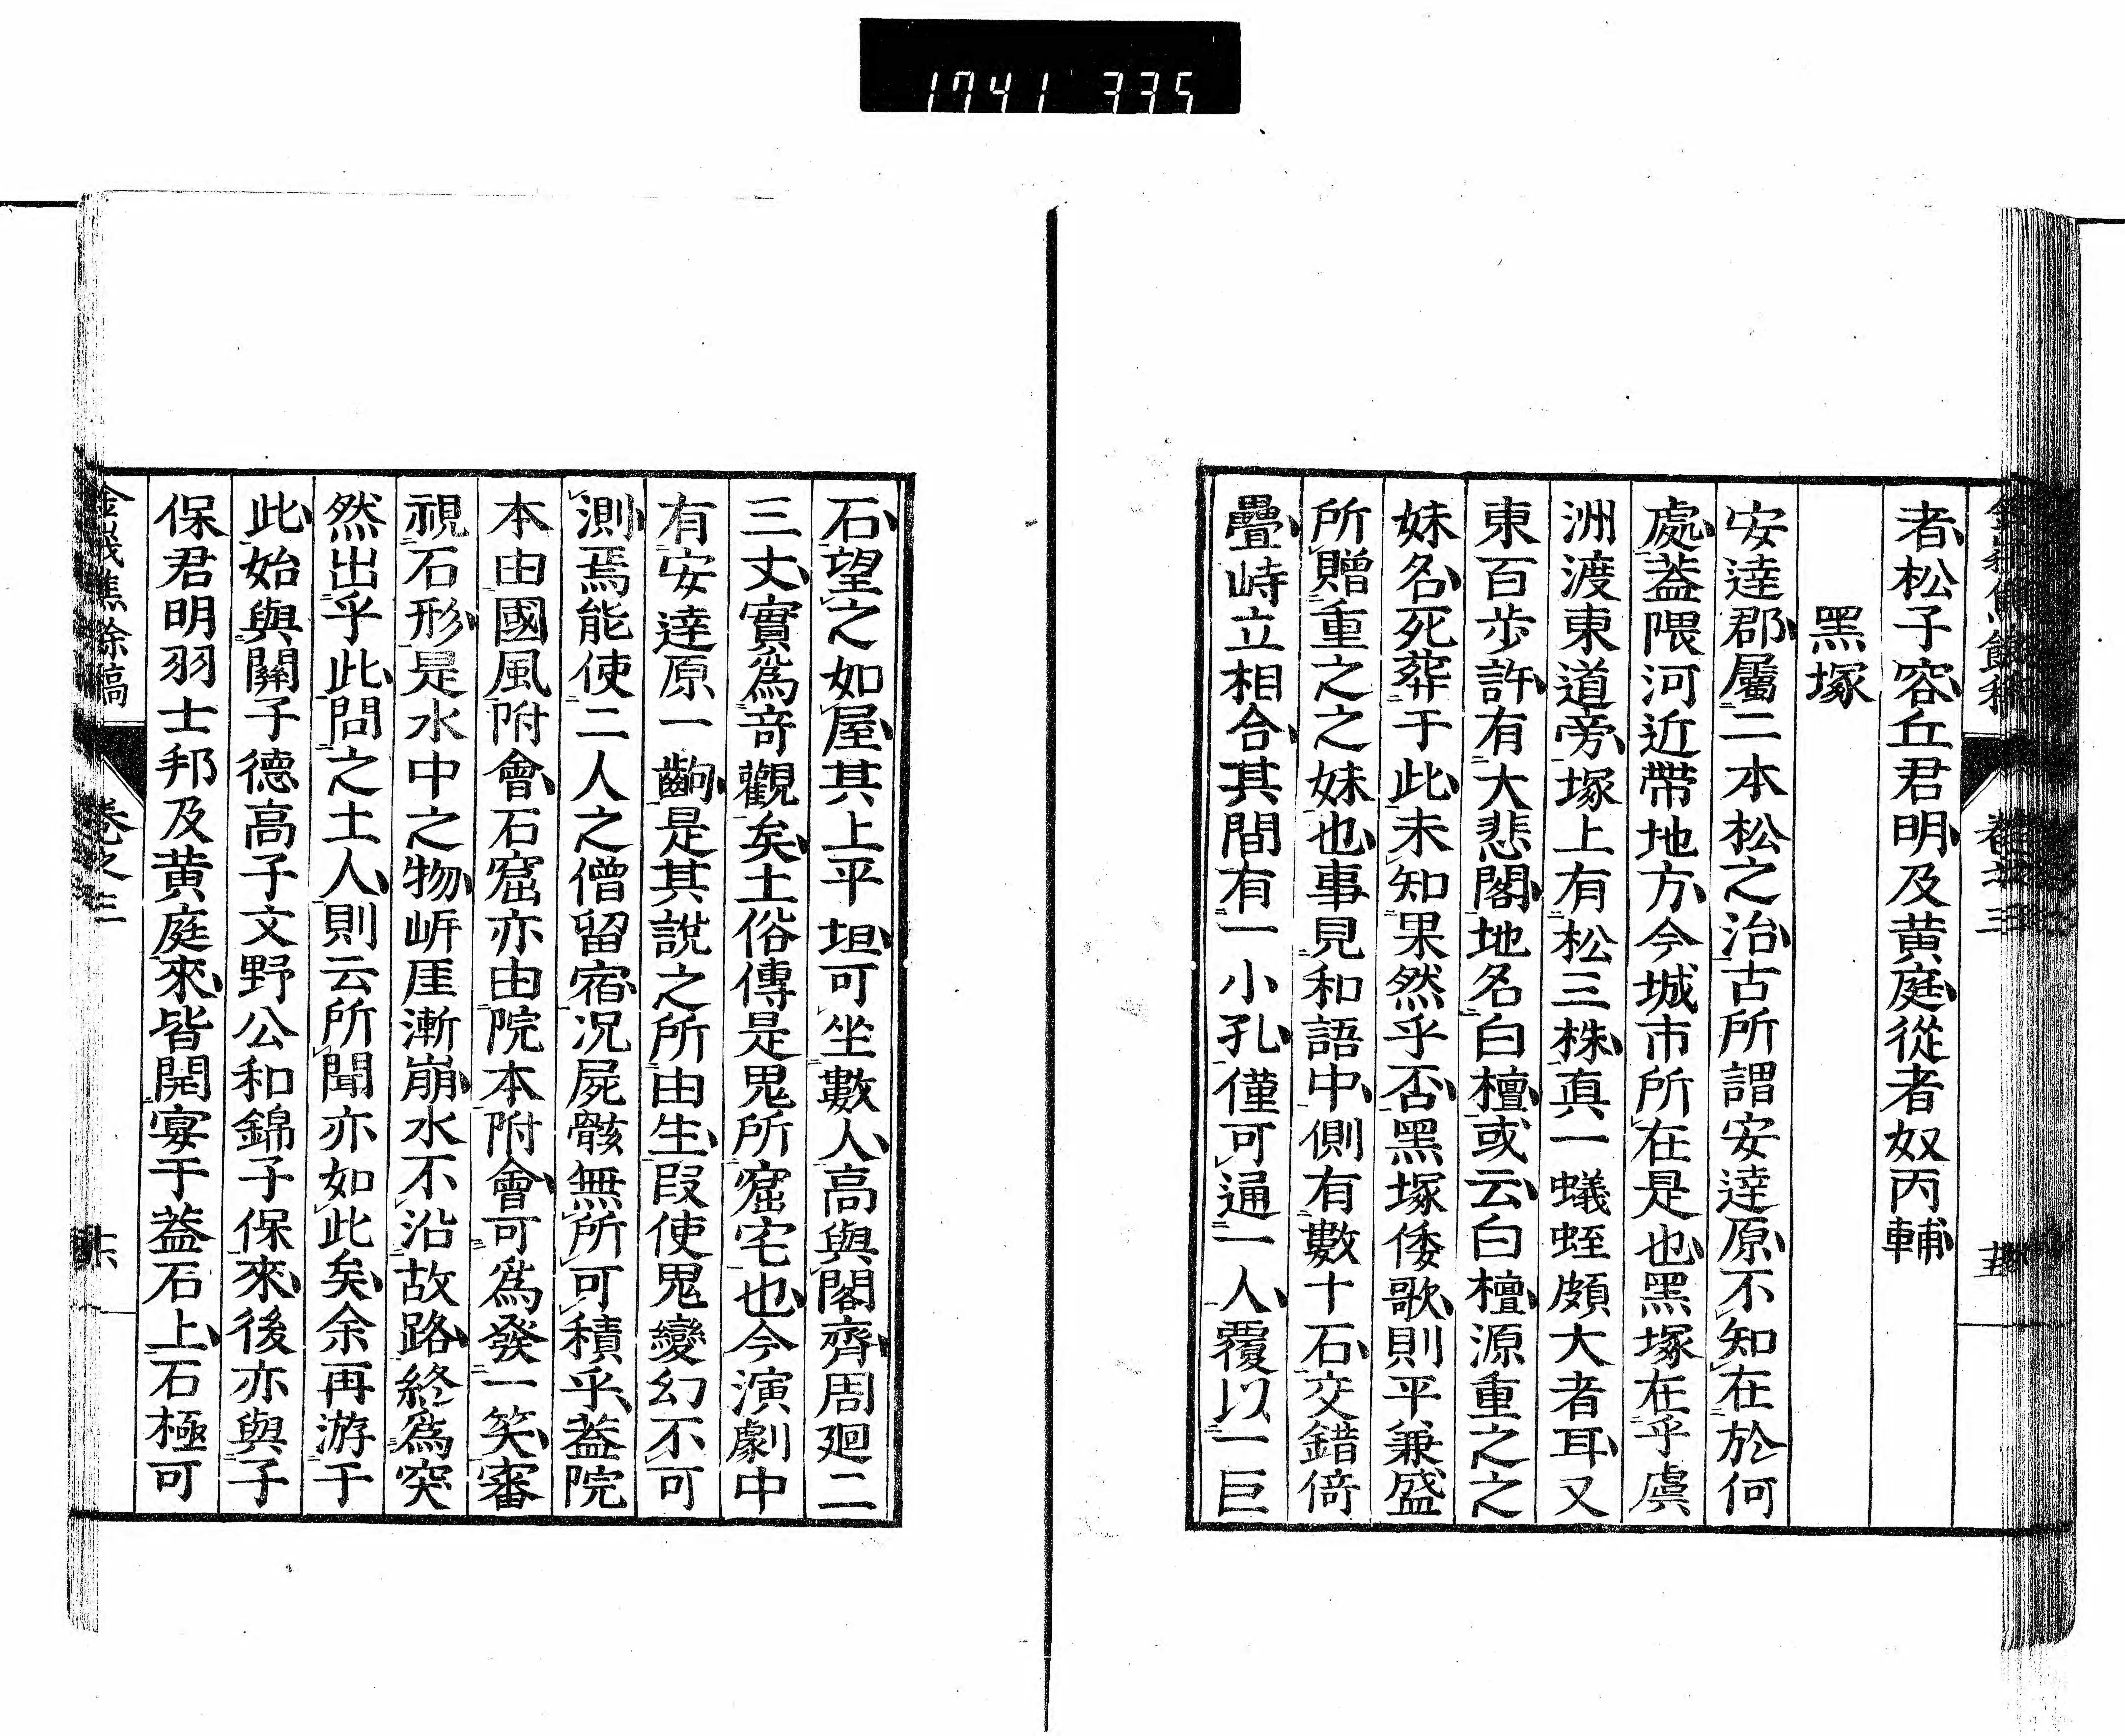 1741 335
者松子容丘君明及黃庭從者奴丙輔
黑塚
安達郡屬二本松之治古所謂安達原不知在於何
處蓋隈河近帶地方今城市所在是也黑塚在乎虞
洲渡東道旁塚上有松三株眞一蟻蛭頗大者耳又
東百步許有大悲閣地名白檀或云白檀源重之之
妹名死葬于此未知果然乎否黑塚倭歌則平兼盛
所贈重之之妹也事見和語中側有數十石交錯倚
疊峙立相合其間有一小孔僅可通一人覆以一巨
石望之如屋其上平坦可坐數人高與閣齊周廻二
三丈實爲奇觀矣土俗傳是鬼所窟宅也今演劇中
有安達原一齣是其說之所由生叚使鬼變幻不可
測焉能使二人之僧留宿况屍骸無所可積乎蓋院
本由國風附會石窟亦由院本附會可爲發一笑審
視石形是水中之物岍厓漸崩水不沿故路終爲突
然出乎此問之土人則云所聞亦如此矣余再游于
此始與關子德高子文野公和錦子保來後亦與子
保君明羽士邦及黃庭來皆開宴于蓋石上石極可
卷之三